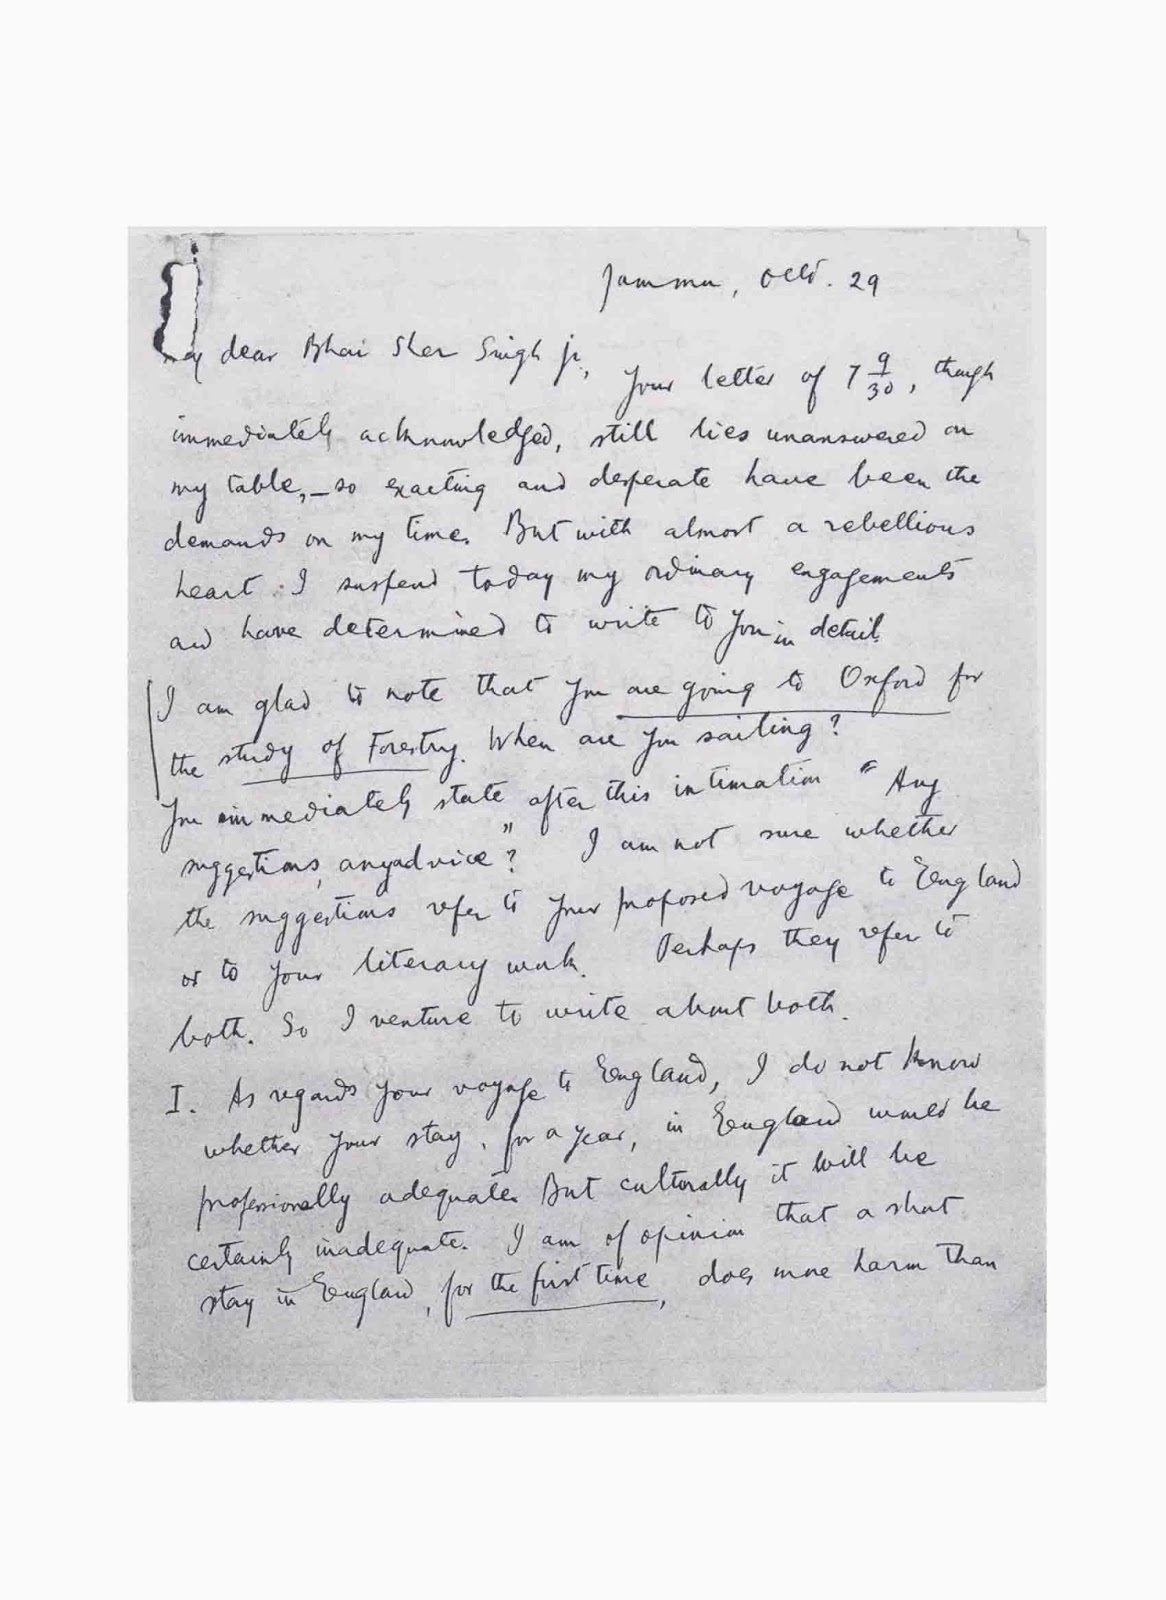 Jammu, Oct. 29
My dear Bhai Sher Singh ji,
Your letter of 7 9/30, though
immediately acknowledged, still lies unanswered on
my table, – so exacting and desperate have been the
demands on my time. But with almost a rebellious
heart I suspend today my ordinary engagements
and have determined to write to you in detail.
I am glad to note that you are going to Oxford for
the study of Forestry. When are you sailing?
You immediately state after this intimation "Any
suggestions, any advice"? I am not sure whether
the suggestions refer to your proposed voyage to England
or to your literary work. Perhaps they refer to
both. So I venture to write about both.
I. As regards your voyage to England, I do not know
whether your stay, for a year, in England would be
professionally adequate. But culturally it will be
certainly inadequate. I am of opinion that a short
stay in England, for the first time, does more harm than